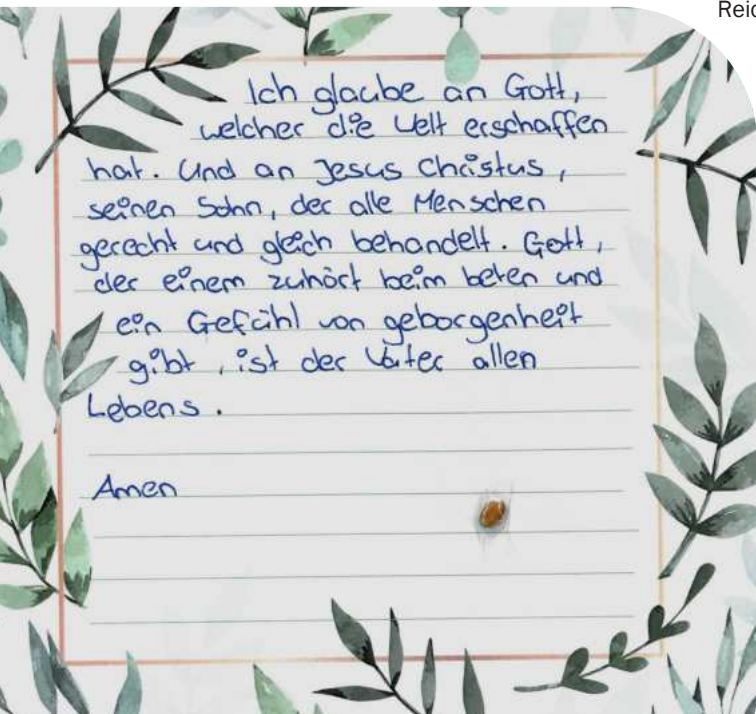 Reic
Ich glaube an Gott,
welcher die Welt erschaffen
hat. Und an Jesus Christus,
seinen Sohn, der alle Menschen
gerecht und gleich behandelt. Gott,
der einem zuhört beim beten und
ein Gefühl von geborgenheit
gibt, ist der Vater allen
Lebens.
Amen